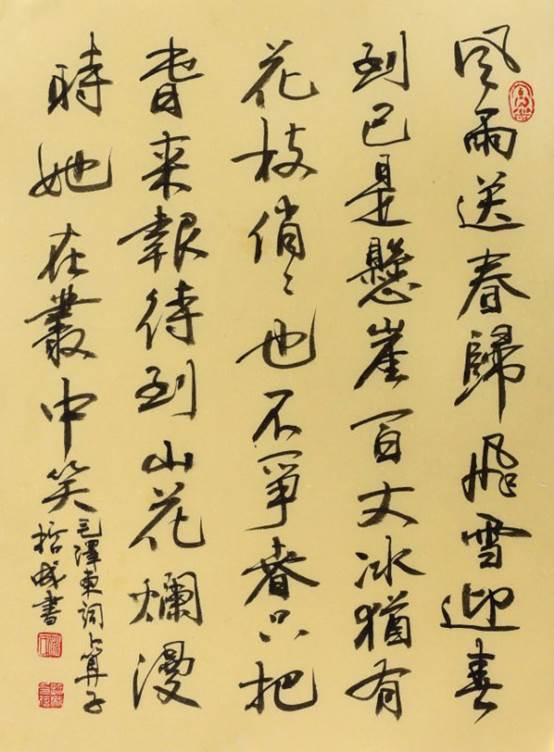 風雨送春歸飛雪迎春
到已是懸崖百丈冰猶有
花枝俏々也不爭春只把
春来報待到山花爛漫
時她在叢中笑
毛澤東詞卜算子
書